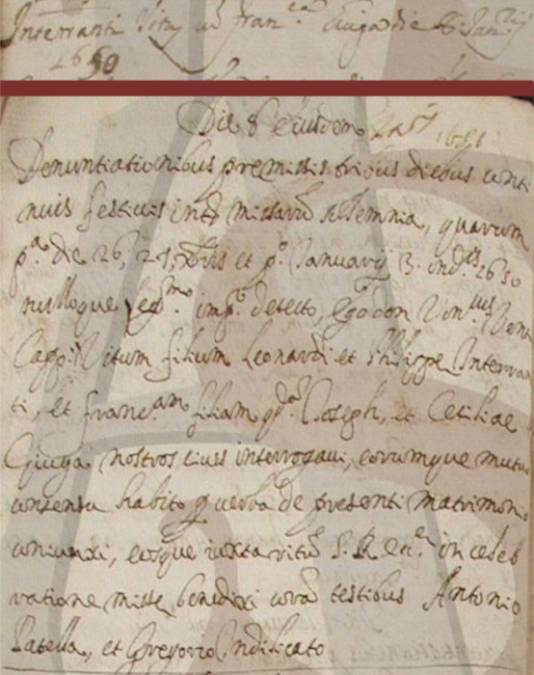 Interranti Vitu cu Fran.ca die 8 Jan.rij
1650
Die 8 eiusdem Jan.rij 1650
Denuntiationibus premissis tribus diebus conti
nuis festivis intra missarũ solemnia, quarum
p.a die 26, 27, Xbris et p.o Januarij 3. ind.is 1650
nulloque leg.mo imp.o detecto, Ego don Vin.ius
Capp.s Vitum filium Leonardi et Philippe Interran
ti, et Franc.am filiam q.m Joseph, et Ceciliae
Giuga nostros interrogavi, eorumque mutuo
consensu habito p verba de presenti matrimonio
coniunxi, eosque iuxta ritũ S. R. ecc.e in celeb
ratione misse benedixi corã testibus Antonio
Patella, et Gregorio Indilicato